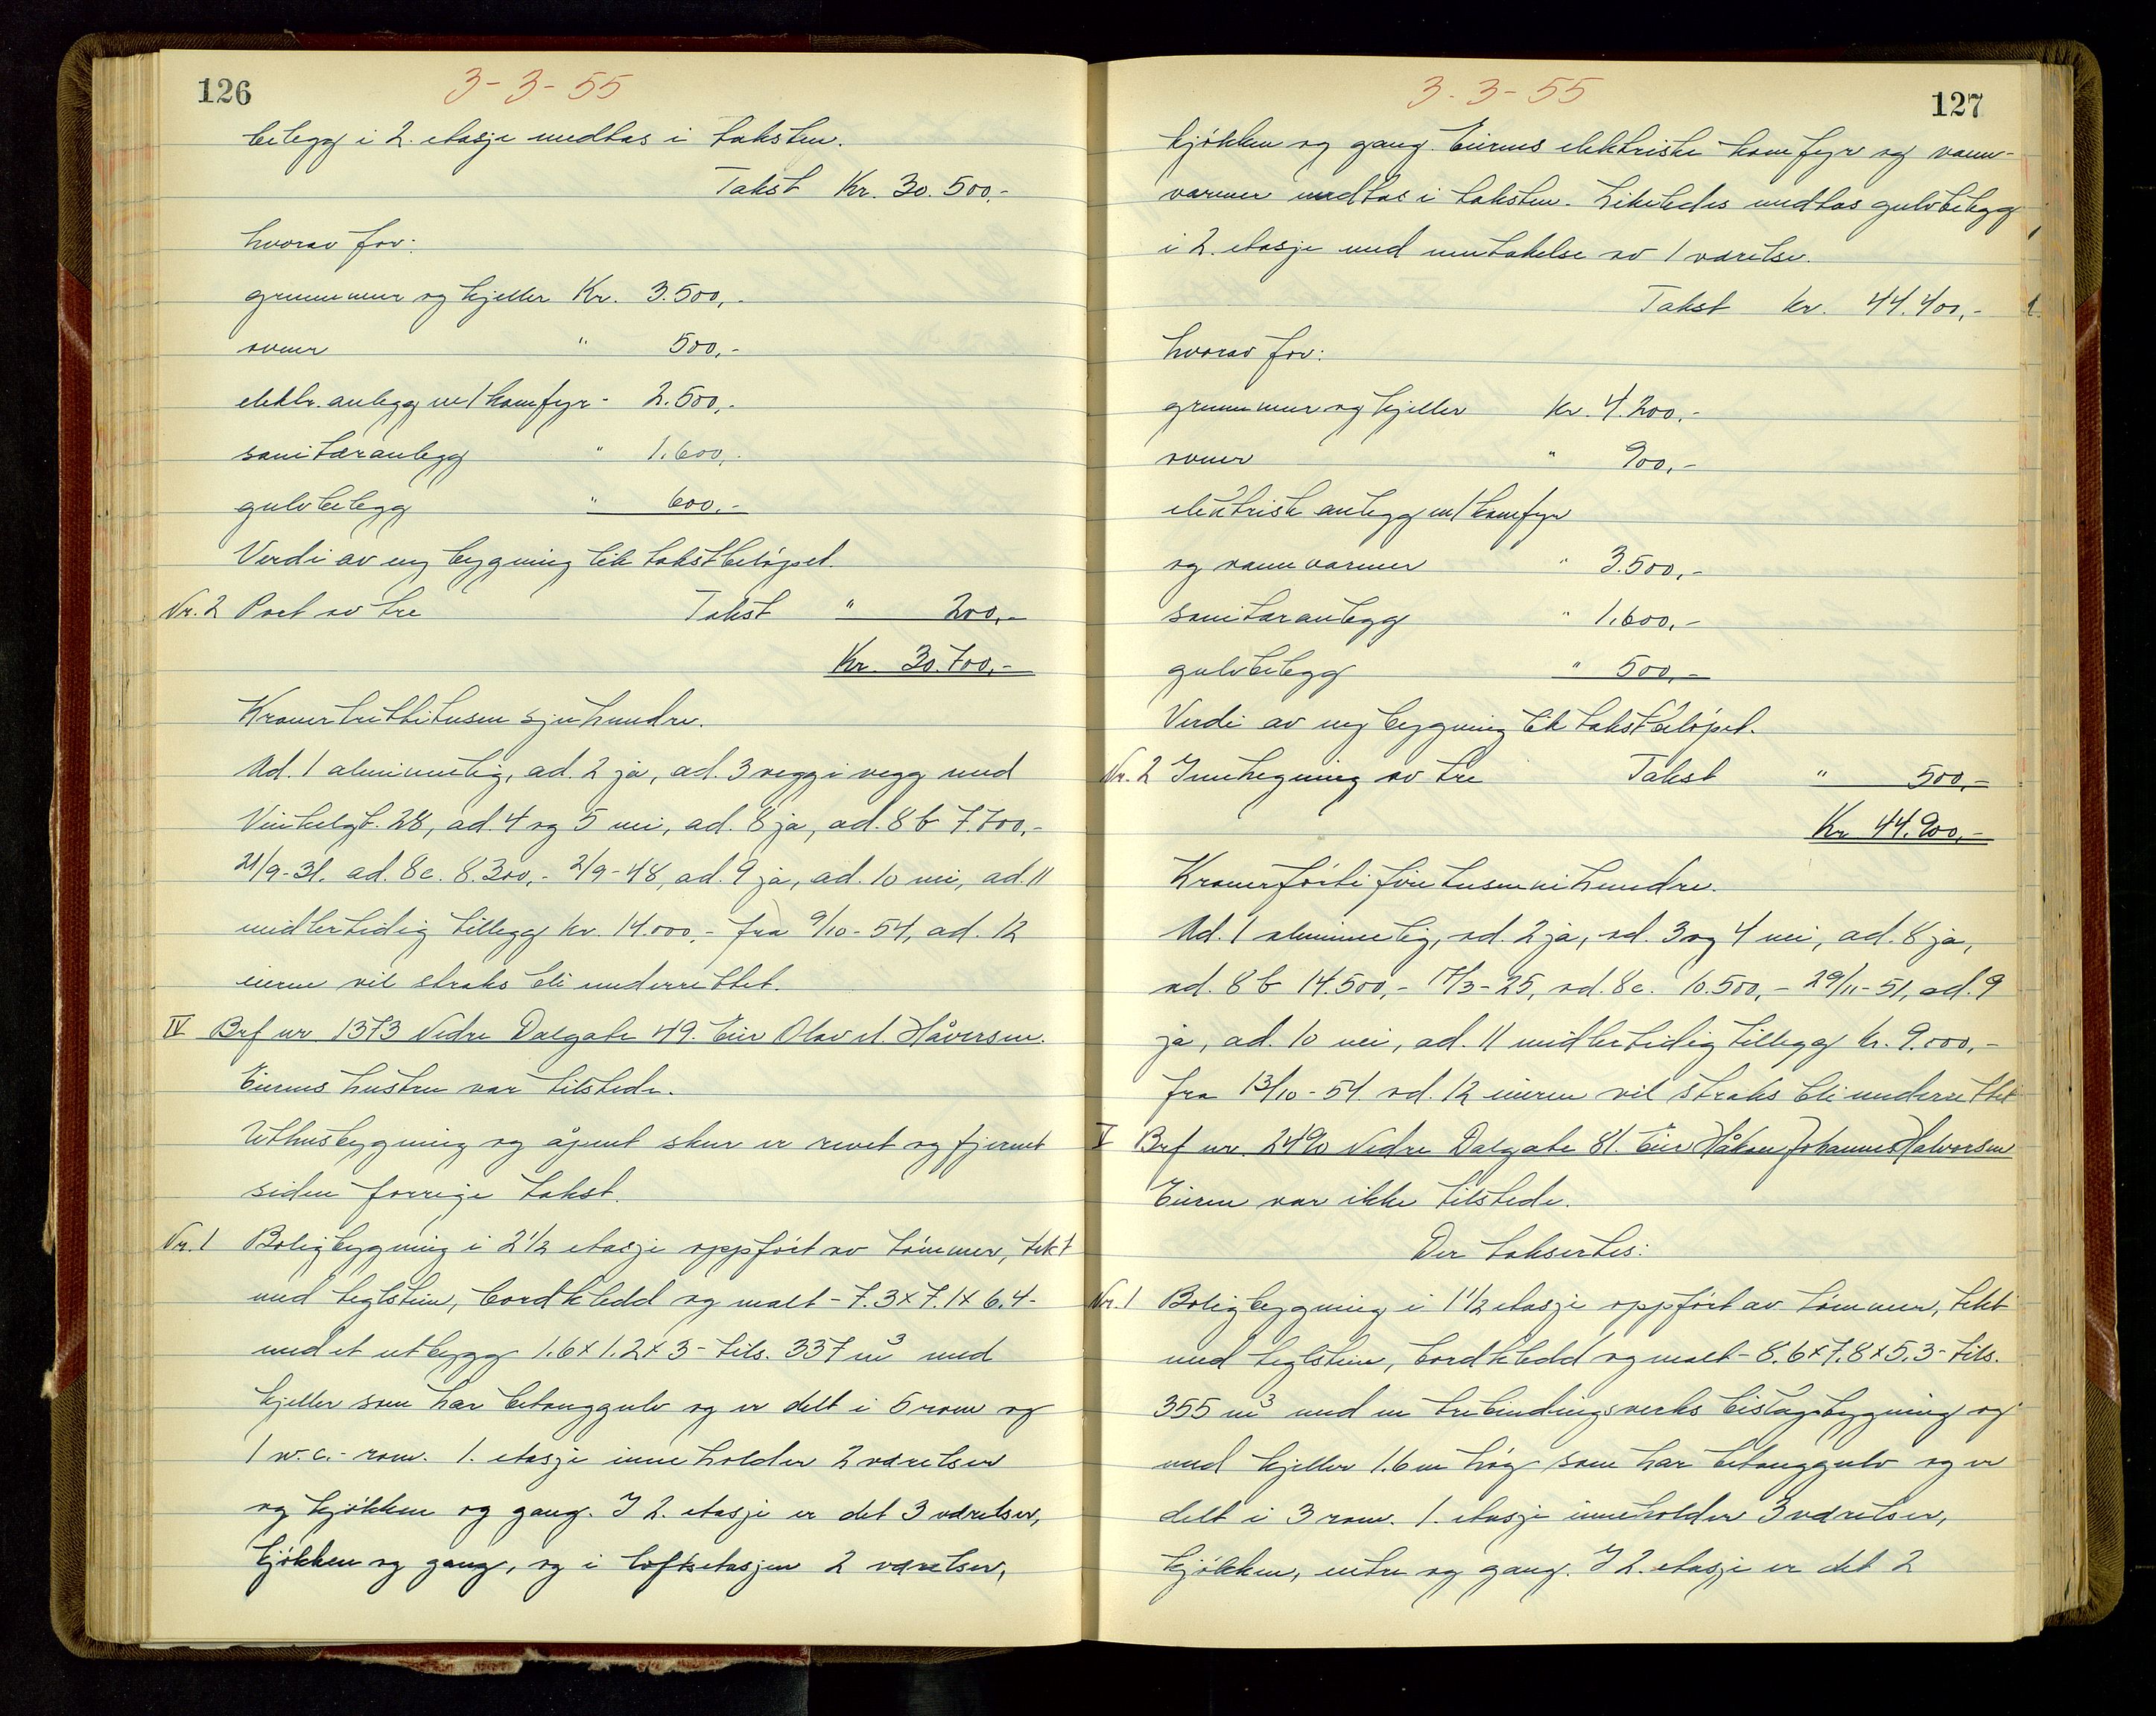 126
3-3-55
belegg i 2. etasje medtas i taksten.
Takst Kr. 30.500,-
hvorav for:
grunnmur og kjeller Kr. 3.500,-
ovner " 500,-
elektr. anlegg m/komfyr - 2.500,-
sanitæranlegg " 1.600,-
gulvbelegg " 600,-
Verdi av ny bygning lik takstbeløpet.
Nr. 2 Port av tre Takst " 200,-
Kr. 30.700,-
Kroner trettitusen sjuhundre.
Ad. 1 alminnelig, ad. 2 ja, ad. 3 vegg i vegg med
Vinkelgt. 28, ad. 4 og 5 nei, ad. 8 ja, ad. 8 b 7.700,-
21/9-31. ad. 8c. 8.300,- 2/9-48, ad. 9 ja, ad. 10 nei, ad. 11
midlertidig tillegg kr. 14.000,- fra 9/10-54, ad. 12
eieren vil straks bli underrettet.
IV Brf nr 1373 Nedre Dalgate 49. Eier Olav M. Håversen.
Eierens hustru var tilstede.
Uthusbygning og åpent skur er revet og fjernet
siden forrige takst.
Nr. 1 Boligbygning i 2 1/2 etasje oppført av tømmer, tekt
med teglstein, bordkledd og malt - 7.3 x 7.1 x 6.4 -
med et utbygg 1.6 x 1.2 x 3 - tils. 337 m³ med
kjeller som har betonggulv og er delt i 5 rom og
1 w.c.-rom. 1. etasje inneholder 2 værelser
og kjøkken og gang. I 2. etasje er det 3 værelser,
kjøkken og gang, og i loftsetasjen 2 værelser,
127
3-3-55
kjøkken og gang. Eierens elektriske komfyr og vann-
varmer medtas i taksten. Likeledes medtas gulvbelegg
i 2. etasje med unntakelse av 1 værelse.
Takst Kr. 44.400,-
hvorav for:
grunnmur og kjeller Kr. 4.200,-
ovner " 900,-
elektrisk anlegg m/komfyr
og vannvarmer " 3.500,-
sanitæranlegg " 1.600,-
gulvbelegg " 500,-
Verdi av ny bygning lik takstbeløpet.
Nr. 2 Innhegning av tre Takst " 500,-
Kr 44.900,-
Kroner førtifire tusen nihundre.
Ad. 1 alminnelig, ad. 2 ja, ad. 3 og 4 nei, ad. 8 ja,
ad. 8 b 14.500,- 17/3-25, ad. 8c. 10.500,- 29/11-51, ad. 9
ja, ad. 10 nei, ad. 11 midlertidig tillegg kr. 9.000,-
fra 13/10-54. ad. 12 eieren vil straks bli underrettet
V Brf nr. 2490 Nedre Dalgate 81. Eier Håkon Johannes Halvorsen
Eieren var ikke tilstede.
Der taksertes:
Nr. 1 Boligbygning i 1 1/2 etasje oppført av tømmer, tekt
med teglstein, bordkledd og malt - 8.6 x 7.8 x 5.3 - tils.
355 m³ med en trebindingsverks bislagsbygning og
med kjeller 1.6 m høg som har betonggulv og er
delt i 3 rom. 1. etasje inneholder 3 værelser,
kjøkken, entre og gang. I 2. etasje er det 2